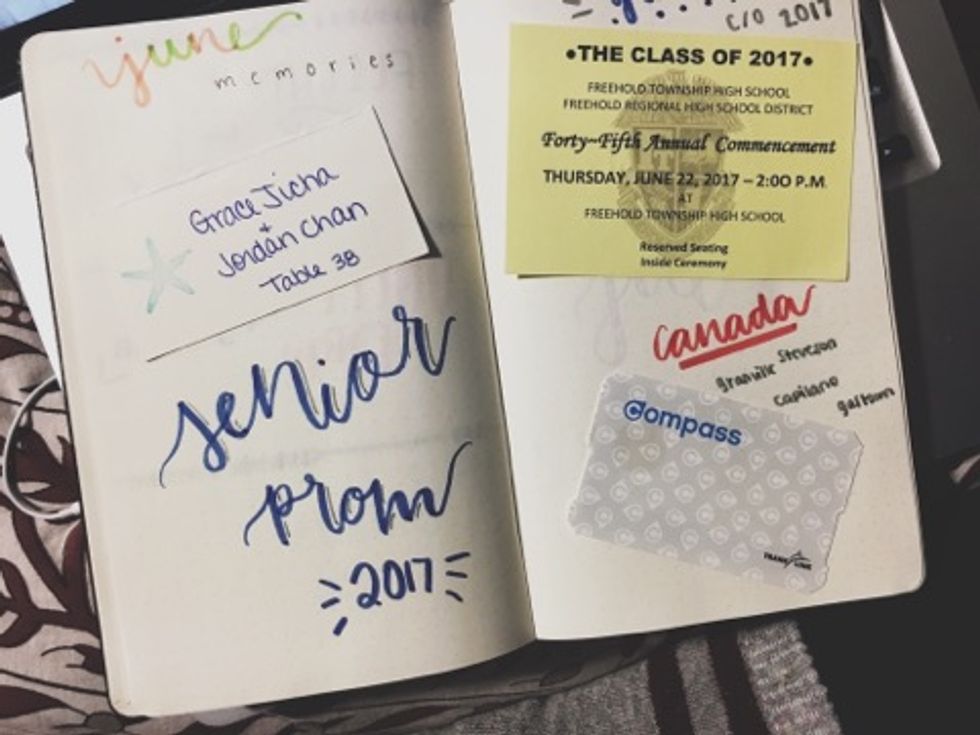 june
memories
Grace Jicha
+
Jordan Chan
Table 38
senior
prom
2017
c/o 2017
•THE CLASS OF 2017•
FREEHOLD TOWNSHIP HIGH SCHOOL
FREEHOLD REGIONAL HIGH SCHOOL DISTRICT
Forty~Fifth Annual Commencement
THURSDAY, JUNE 22, 2017 – 2:00 P.M.
AT
FREEHOLD TOWNSHIP HIGH SCHOOL
Reserved Seating
Inside Ceremony
canada
Steveson
granville
Capilano
Compass
TRANSLINK